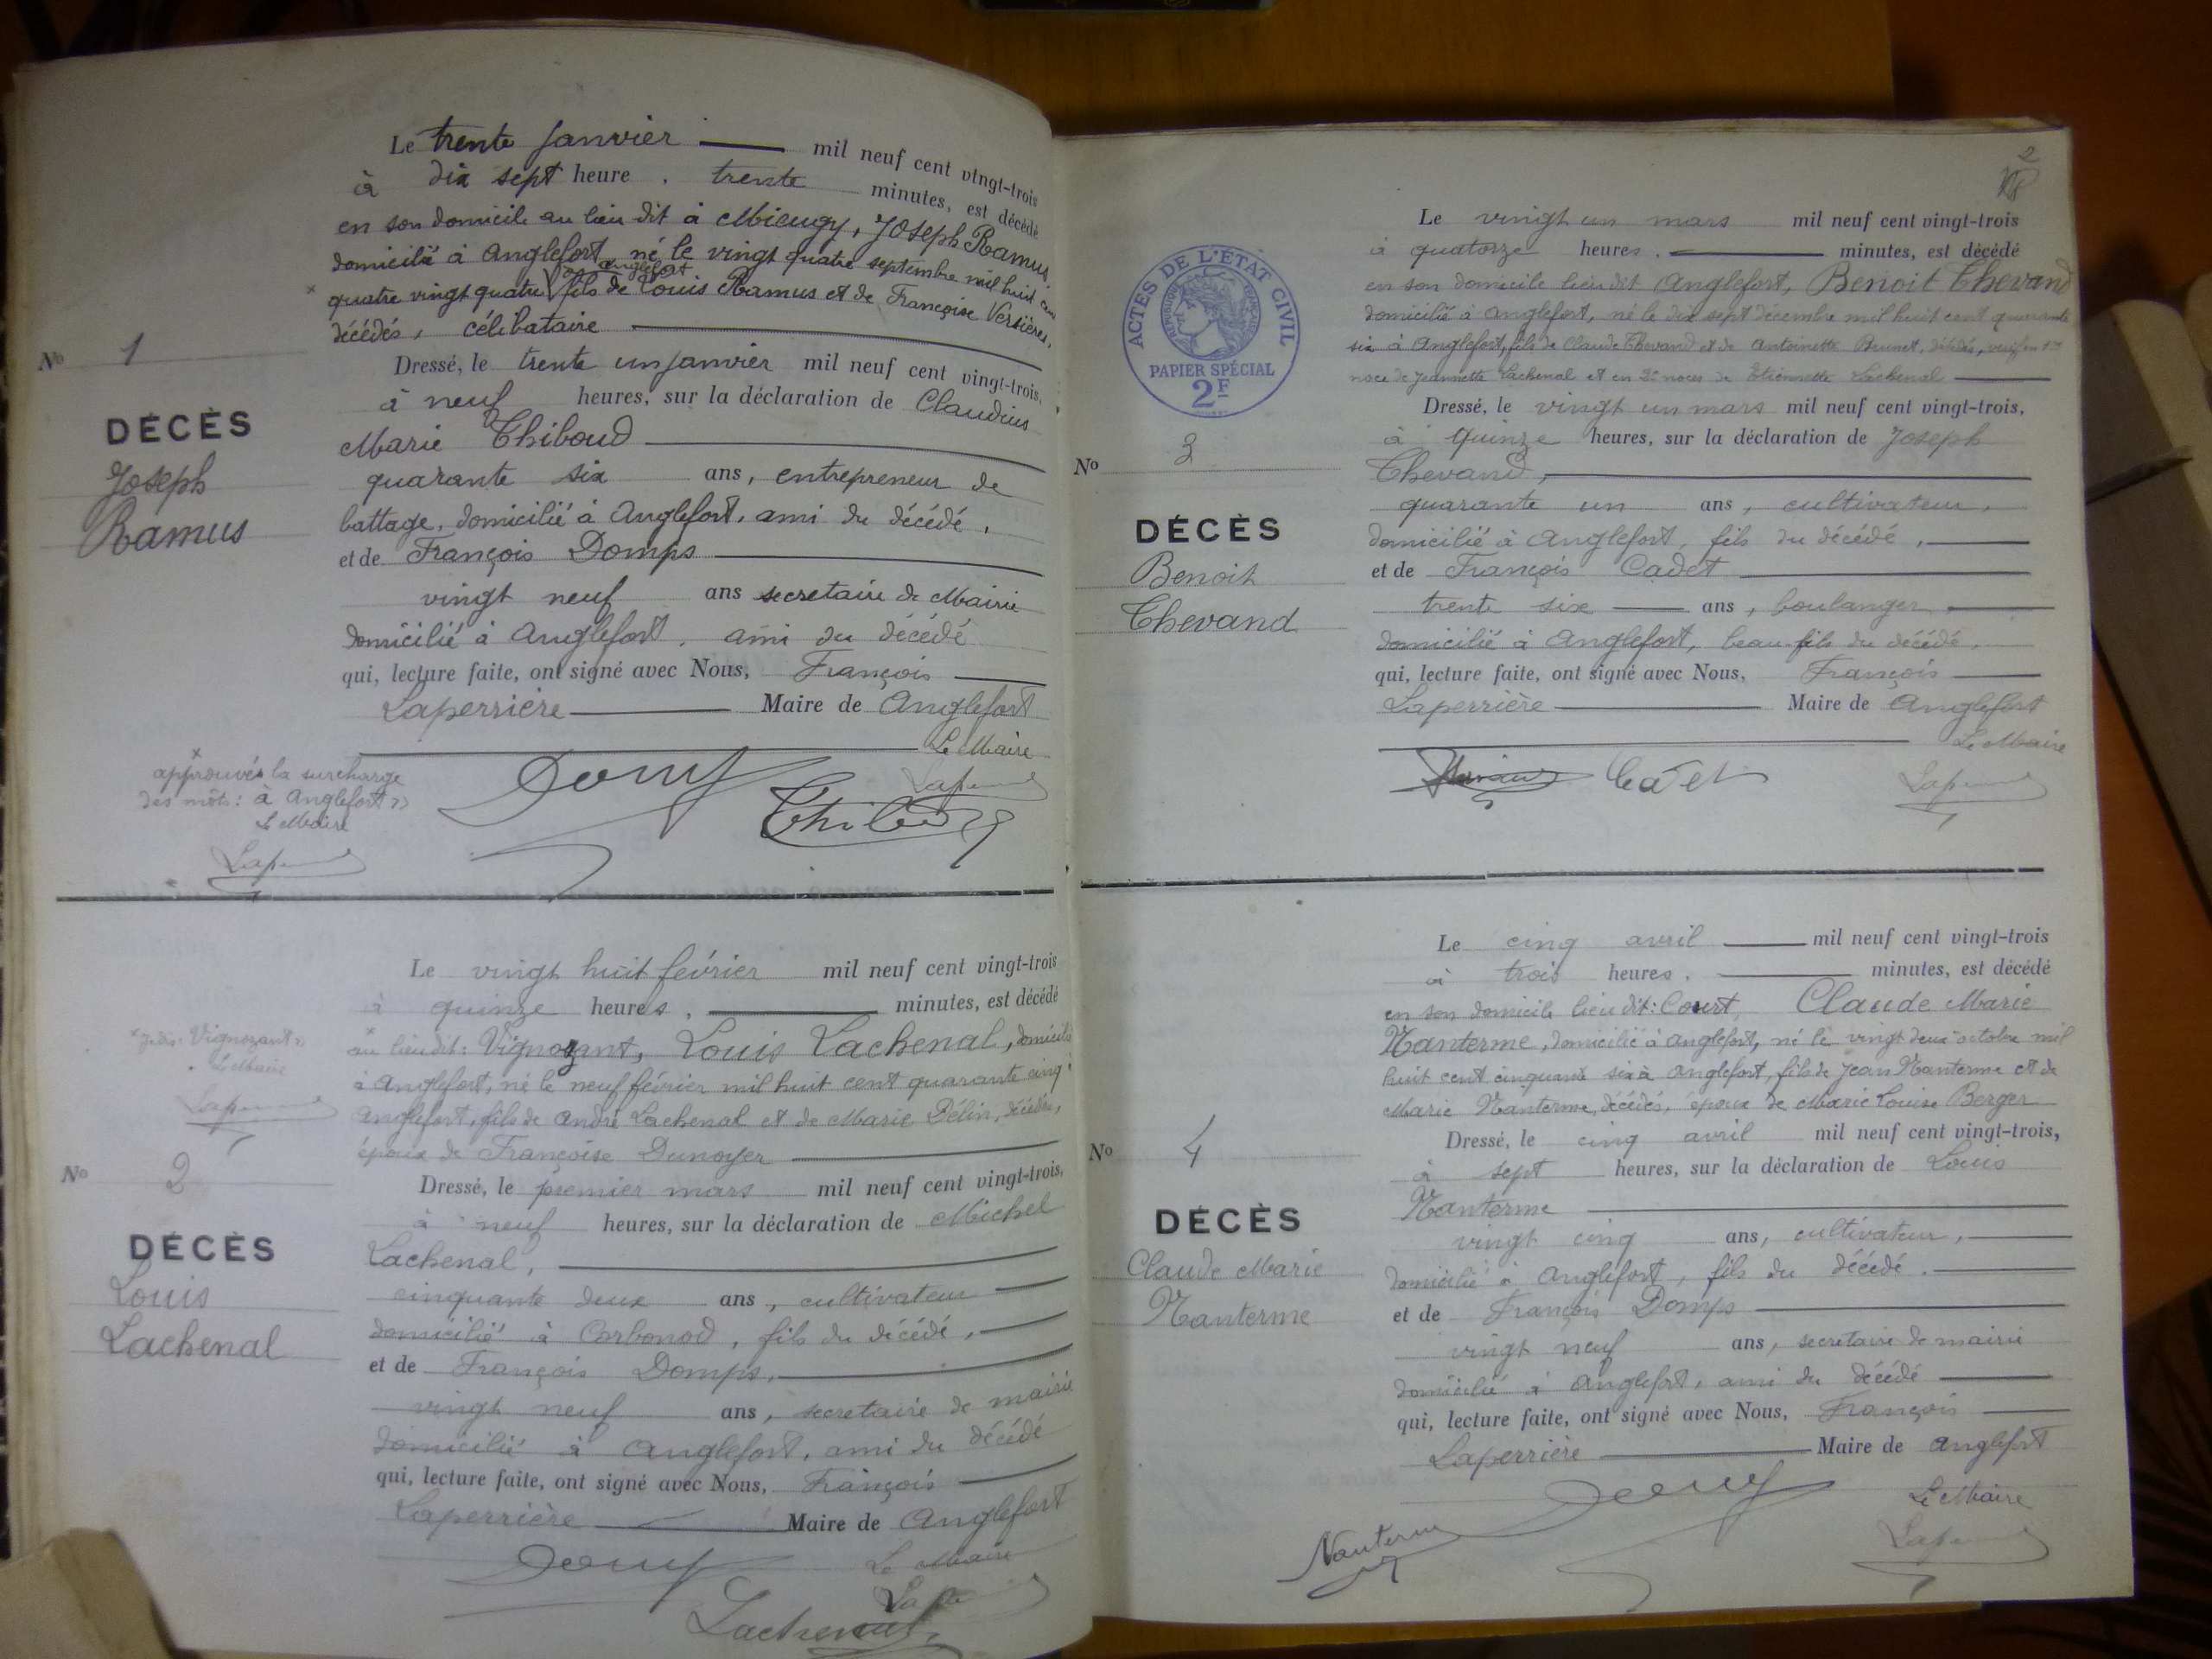 Le trente janvier mil neuf cent vingt-trois
à dix sept heure . trente minutes, est décédé
en son domicile au lieu dit à Mieugy, Joseph Ramus,
domicilié à Anglefort né le vingt quatre septembre mil huit cent
à Anglefort
x quatre vingt quatre fils de Louis Ramus et de Françoise Versières,
décédés, célibataire
Dressé, le trente un janvier mil neuf cent vingt-trois,
à neuf heures, sur la déclaration de Claudius
Marie Thiboud
quarante six ans, entrepreneur de
battage, domicilié à Anglefort, ami du décédé,
et de François Domps
vingt neuf ans secretaire de Mairie
domicilié à Anglefort, ami du décédé
qui, lecture faite, ont signé avec Nous, François
Laperrière Maire de Anglefort
Le Maire
No 1
DÉCÈS
Joseph
Ramus
x
approuvés la surcharge
des mots: à Anglefort »
Le Maire
Le vingt huit février mil neuf cent vingt-trois
à quinze heures, minutes, est décédé
au lieu dit: Vignozant, Louis Lachenal, domicilié
à Anglefort, né le neuf février mil huit cent quarante cinq à
Anglefort, fils de André Lachenal et de Marie Délin, décédés,
époux de Françoise Dunoyer
Dressé, le premier mars mil neuf cent vingt-trois,
à neuf heures, sur la déclaration de Michel
Lachenal,
cinquante deux ans, cultivateur
domicilié à Corbonod, fils du décédé,
et de François Domps,
vingt neuf ans, secretaire de mairie
domicilié à Anglefort, ami du décédé
qui, lecture faite, ont signé avec Nous, François
Laperrière Maire de Anglefort
Le Maire
Lachenal
Vignozant »
Le Maire
No 2
DÉCÈS
Louis
Lachenal
2
ACTES DE L'ÉTAT CIVIL
RÉPUBLIQUE FRANÇAISE
PAPIER SPÉCIAL
2F
Le vingt un mars mil neuf cent vingt-trois
à quatorze heures. minutes, est décédé
en son domicile lieu dit Anglefort, Benoit Thevand
domicilié à Anglefort, né le dix sept décembre mil huit cent quarante
six à Anglefort, fils de Claude Thevand et de Antoinette Brunet, décédés, veuf en 1re
noce de Jeannette Lachenal et en 2e noces de Etiennette Lachenal
Dressé, le vingt un mars mil neuf cent vingt-trois,
à quinze heures, sur la déclaration de Joseph
Thevand,
quarante un ans, cultivateur,
domicilié à Anglefort, fils du décédé,
et de François Cadet
trente six ans, boulanger
domicilié à Anglefort, beau-fils du décédé,
qui, lecture faite, ont signé avec Nous, François
Laperrière Maire de Anglefort
Le Maire
Cadet
No 3
DÉCÈS
Benoit
Thevand
Le cinq avril mil neuf cent vingt-trois
à trois heures. minutes, est décédé
en son domicile lieu dit: Court, Claude Marie
Nanterme, domicilié à Anglefort, né le vingt deux octobre mil
huit cent cinquante six à Anglefort, fils de Jean Nanterme et de
Marie Nanterme, décédés, époux de Marie Louise Berger
Dressé, le cinq avril mil neuf cent vingt-trois,
à sept heures, sur la déclaration de Louis
Nanterme
vingt cinq ans, cultivateur,
domicilié à Anglefort, fils du décédé.
et de François Domps
vingt neuf ans, secretaire de mairie
domicilié à Anglefort, ami du décédé
qui, lecture faite, ont signé avec Nous, François
Laperrière Maire de Anglefort
Le Maire
No 4
DÉCÈS
Claude Marie
Nanterme